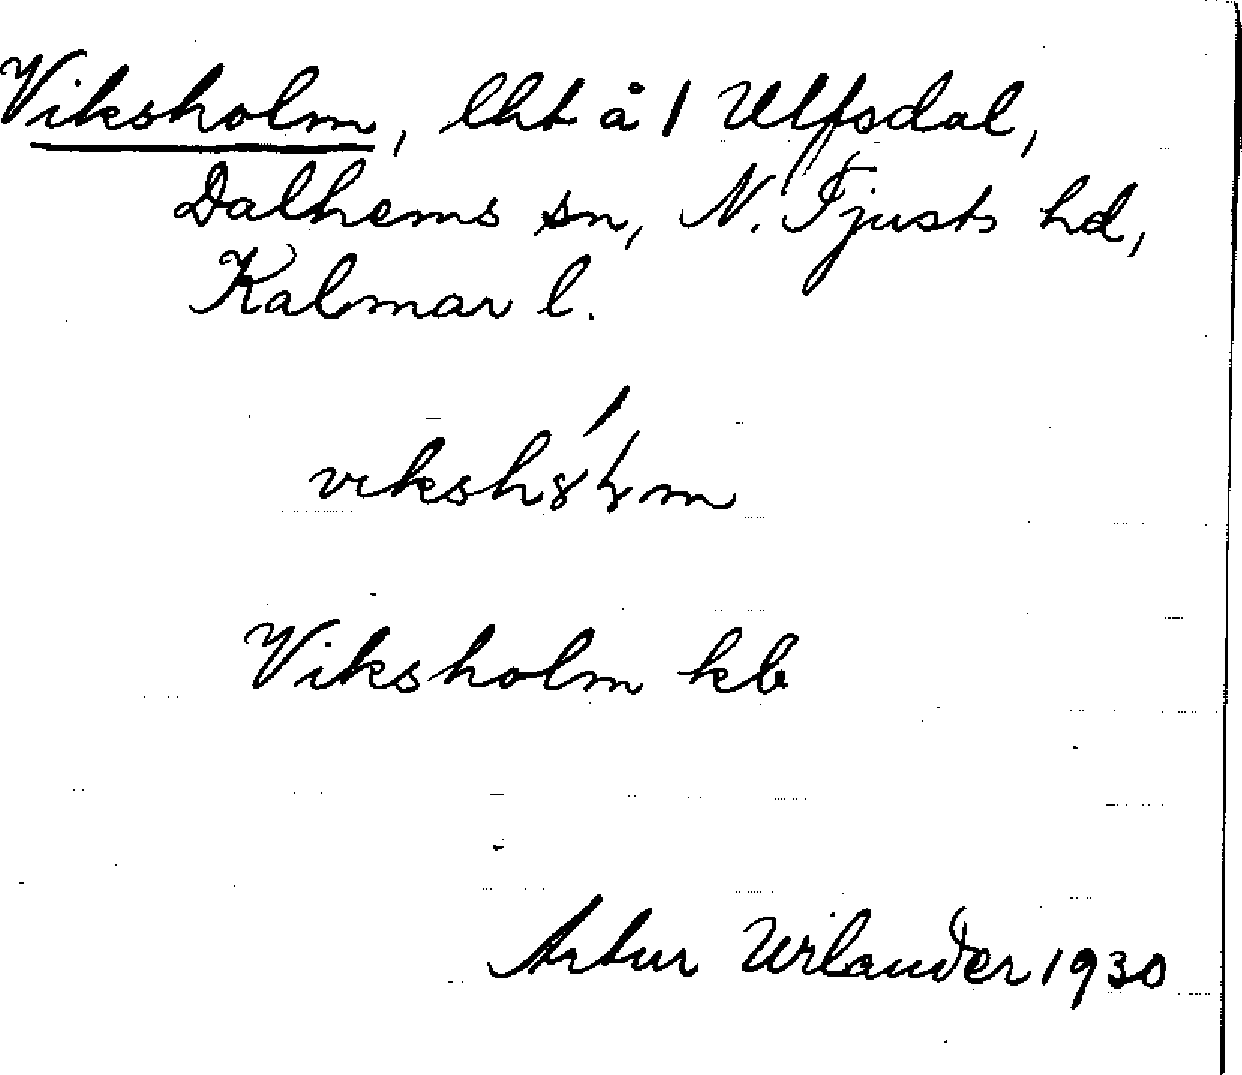 Viksholm, lht å 1 Ulfsdal,
Dalhems sn, N. Tjusts hd,
Kalmar l.
Viksholm kb
Artur Urlander 1930